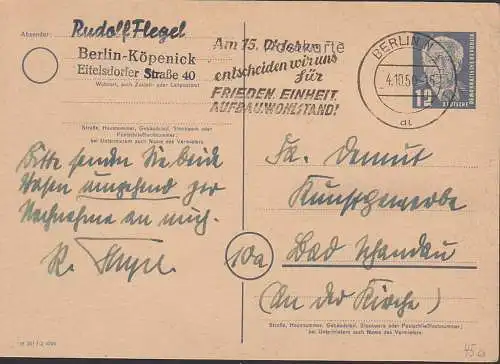 Absender: Rudolf Flegel
Berlin-Köpenick
Eitelsdorfer Straße 40
Wohnort, auch Zustell- oder Leitpostamt
Straße, Hausnummer, Gebäudeteil, Stockwerk oder
Postschließfachnummer;
bei Untermietern auch Name des Vermieters
Postkarte
Am 15. Oktober
entscheiden wir uns
für
FRIEDEN, EINHEIT,
AUFBAU, WOHLSTAND!
BERLIN N
4.10.50
12
DEUTSCHE
DEMOKRATISCHE REPUBLIK
Bitte senden Sie beide
Vasen umgehend per
Nachnahme an mich.
R. Flegel
Fa. Demut
Kunstgewerbe
10a
Bad Schandau
(An der Kirche)
Straße, Hausnummer, Gebäudeteil, Stockwerk oder Postschließfachnummer;
bei Untermietern auch Name des Vermieters